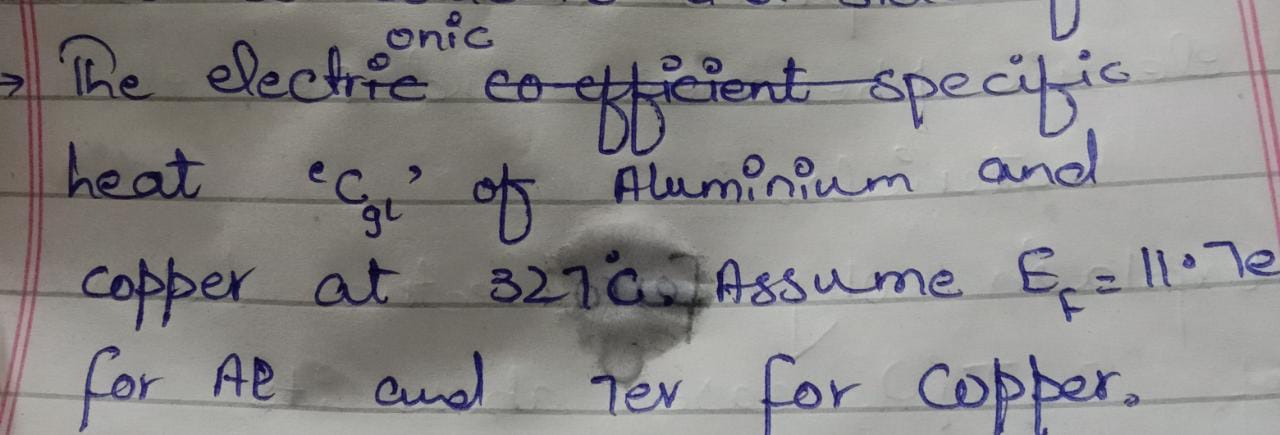 onic
→ The electric co-efficient specific
heat 'Cel' of Aluminium and
copper at 327°C. Assume E_F = 11.7e
for Al and 7ev for copper.